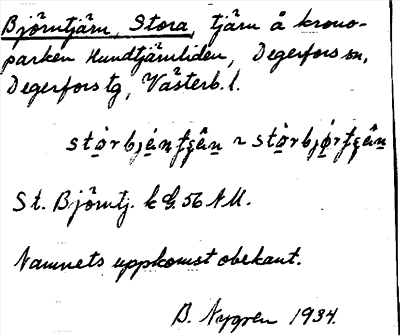 Björntjärn, Stora, tjärn å krono-
parken Hundtjärnliden, Degerfors sn,
Degerfors tg, Västerb. l.
St. Björntj. k 56 NU.
Namnets uppkomst obekant.
B. Nygren 1934.